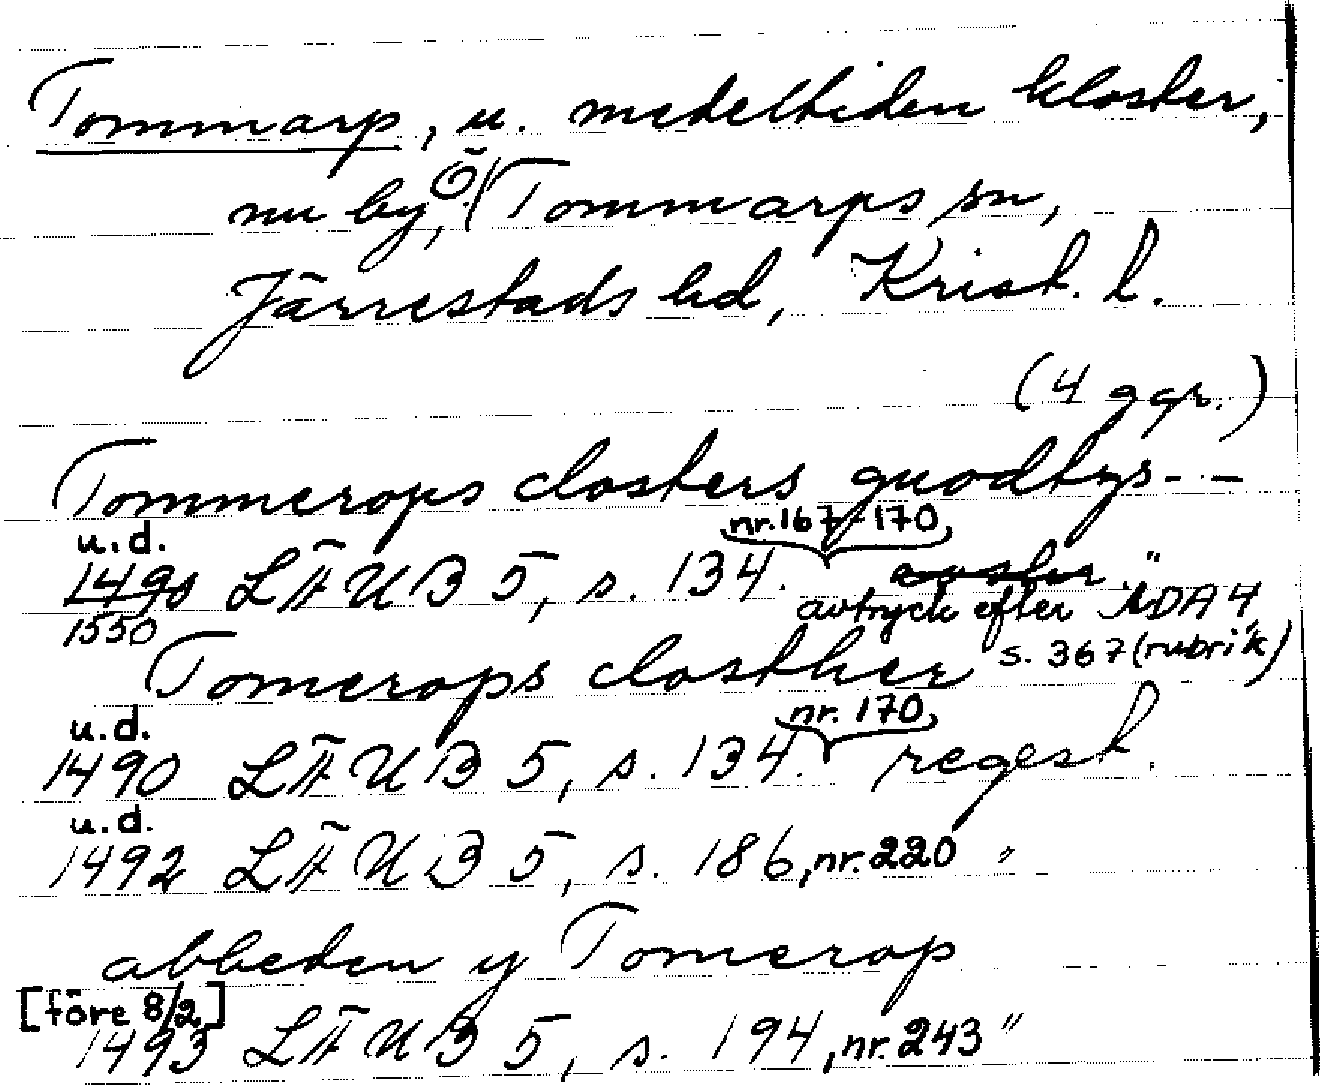 Tommarp, u. medeltiden kloster,
nu by, Ö. Tommarps sn,
Järrestads hd, Krist. l.
(4 ggr.)
Tommerops closters guodtzs - -
u.d. nr. 167-170
1490 LÄUB 5, s. 134.
1550 avtryck efter ÄDA 4
s. 367 (rubrik)
Tomerops closther
u.d. nr. 170
1490 LÄUB 5, s. 134. regest.
u.d.
1492 LÄUB 5, s. 186, nr. 220 "
abbeden y Tomerop
[före 8/2]
1493 LÄUB 5, s. 194, nr. 243 "